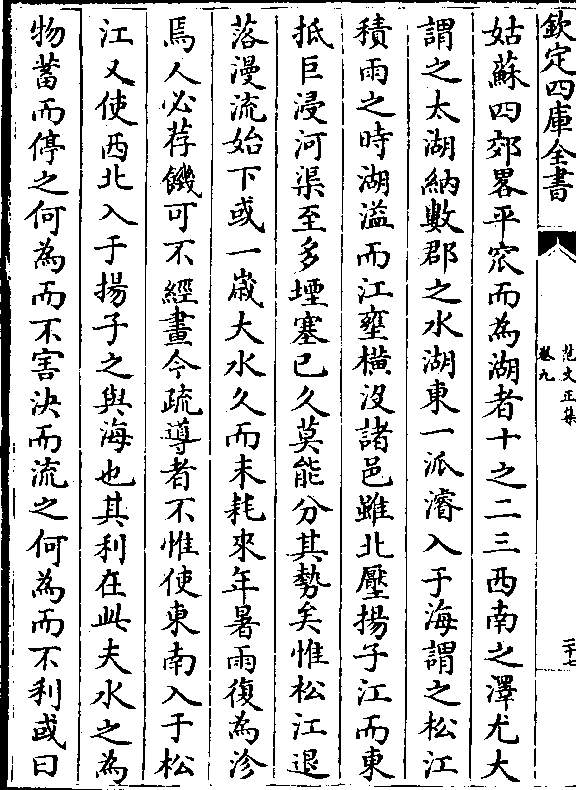 欽定四庫全書
范文正集
卷九
二十七
姑蘇四郊畧平窊而為湖者十之二三西南之澤尤大
謂之太湖納數郡之水湖東一派濬入于海謂之松江
積雨之時湖溢而江壅橫沒諸邑雖北壓揚子江而東
抵巨浸河渠至多堙塞已久莫能分其勢矣惟松江退
落漫流始下或一嵗大水久而未耗來年暑雨復為沴
焉人必荐饑可不經畫今疏導者不惟使東南入于松
江又使西北入于揚子之與海也其利在此夫水之為
物蓄而停之何為而不害決而流之何為而不利或曰